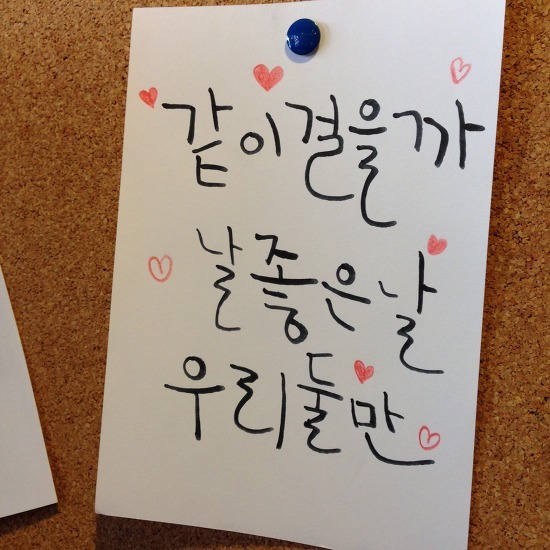 같이걸을까
날좋은날
우리둘만